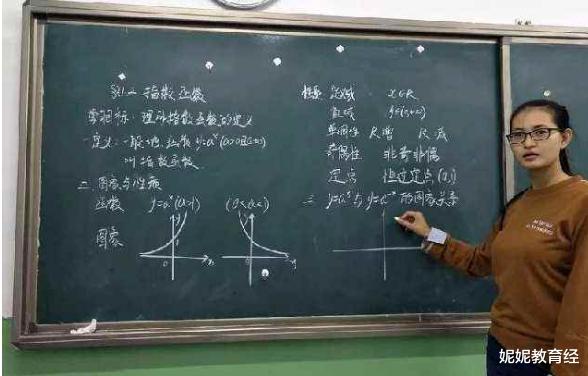 指数函数
学习目标:理解指数函数的定义
定义:一般地,函数y=aˣ(a>0且a≠1)
叫指数函数
二.图象与性质
函数 y=aˣ(a>1) (0<a<1)
图象
定义域 x∈R
值域 y∈(0,+∞)
单调性 R增 R减
奇偶性 非奇非偶
定点 恒过定点(0,1)
三 y=aˣ与y=a⁻ˣ的图象关系
妮妮教育经